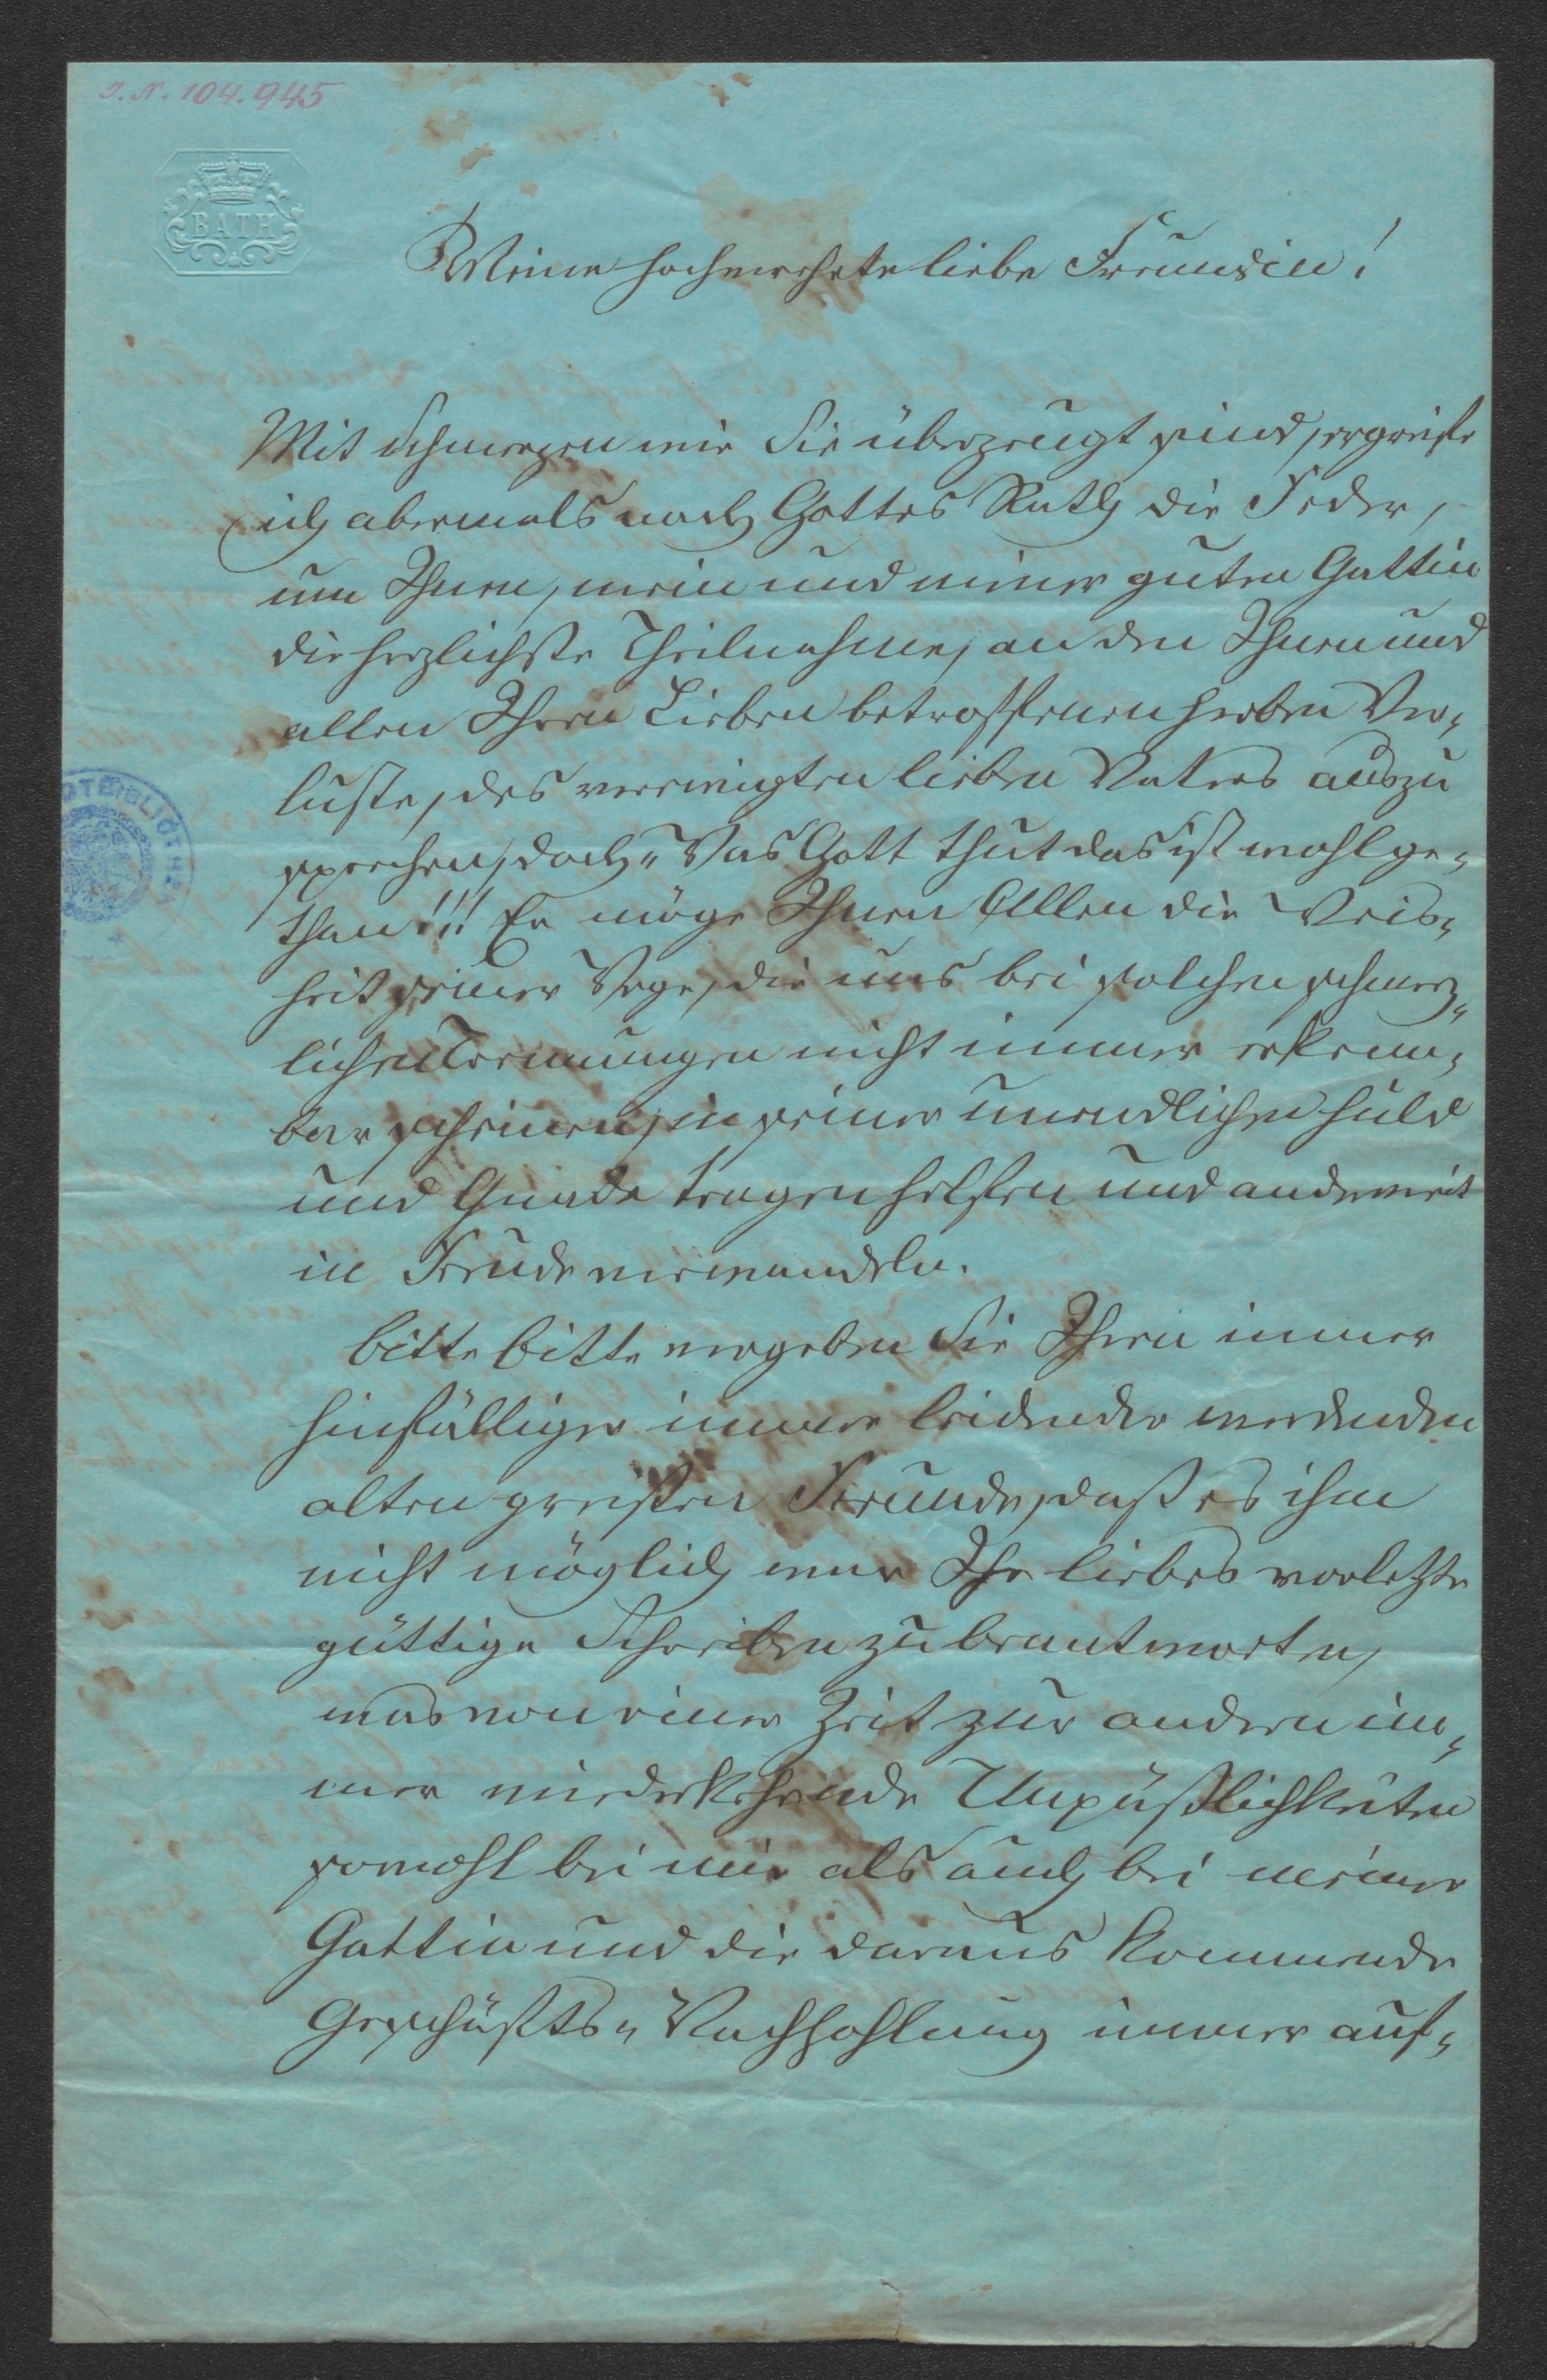 I. N. 104.945
BATH
Meine hochverehrte liebe Freundin!
Mit Schmerzen wie Sie überzeugt sind, ergreife
ich abermals nach Gottes Rath die Feder,
um Ihnen, mein und meiner guten Gattin
die herzlichste Theilnahme, an den Ihnen und
allen Ihren Lieben betroffenen herben Ver-
luste, des verewigten lieben Vaters auszu
sprechen, doch „Was Gott thut das ist wohl ge-
than!!! Er möge Ihnen Allen die Weis-
heit seiner Wege, die uns bei solchen schmerz-
lichen Trennungen nicht immer erkenn-
bar scheinen, in seiner unendlichen Huld
und Gnade tragen helfen und anderweit
in Freude verwandeln.
Bitte bitte vergeben Sie Ihren immer
hinfälliger immer leidender werdenden
alten Freunde, daß es ihm
nicht möglich war Ihr liebes vorletzte
güttige Schreiben zu beantworten,
was von einer Zeit zur andern im-
mer wiederkehrende Unpäßlichkeiten
sowohl bei mir als auch bei meiner
Gattin und die daraus kommende
Geschäfts-Nachhohlung immer auf-